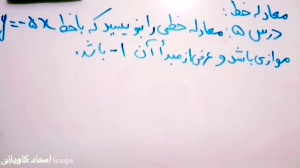 معادله خط:
درس ۵: معادله خطی را بنویسید که با خط y=-۵x
موازی باشد و عرض از مبدأ آن ۱- باشد.
استاد کاویانی